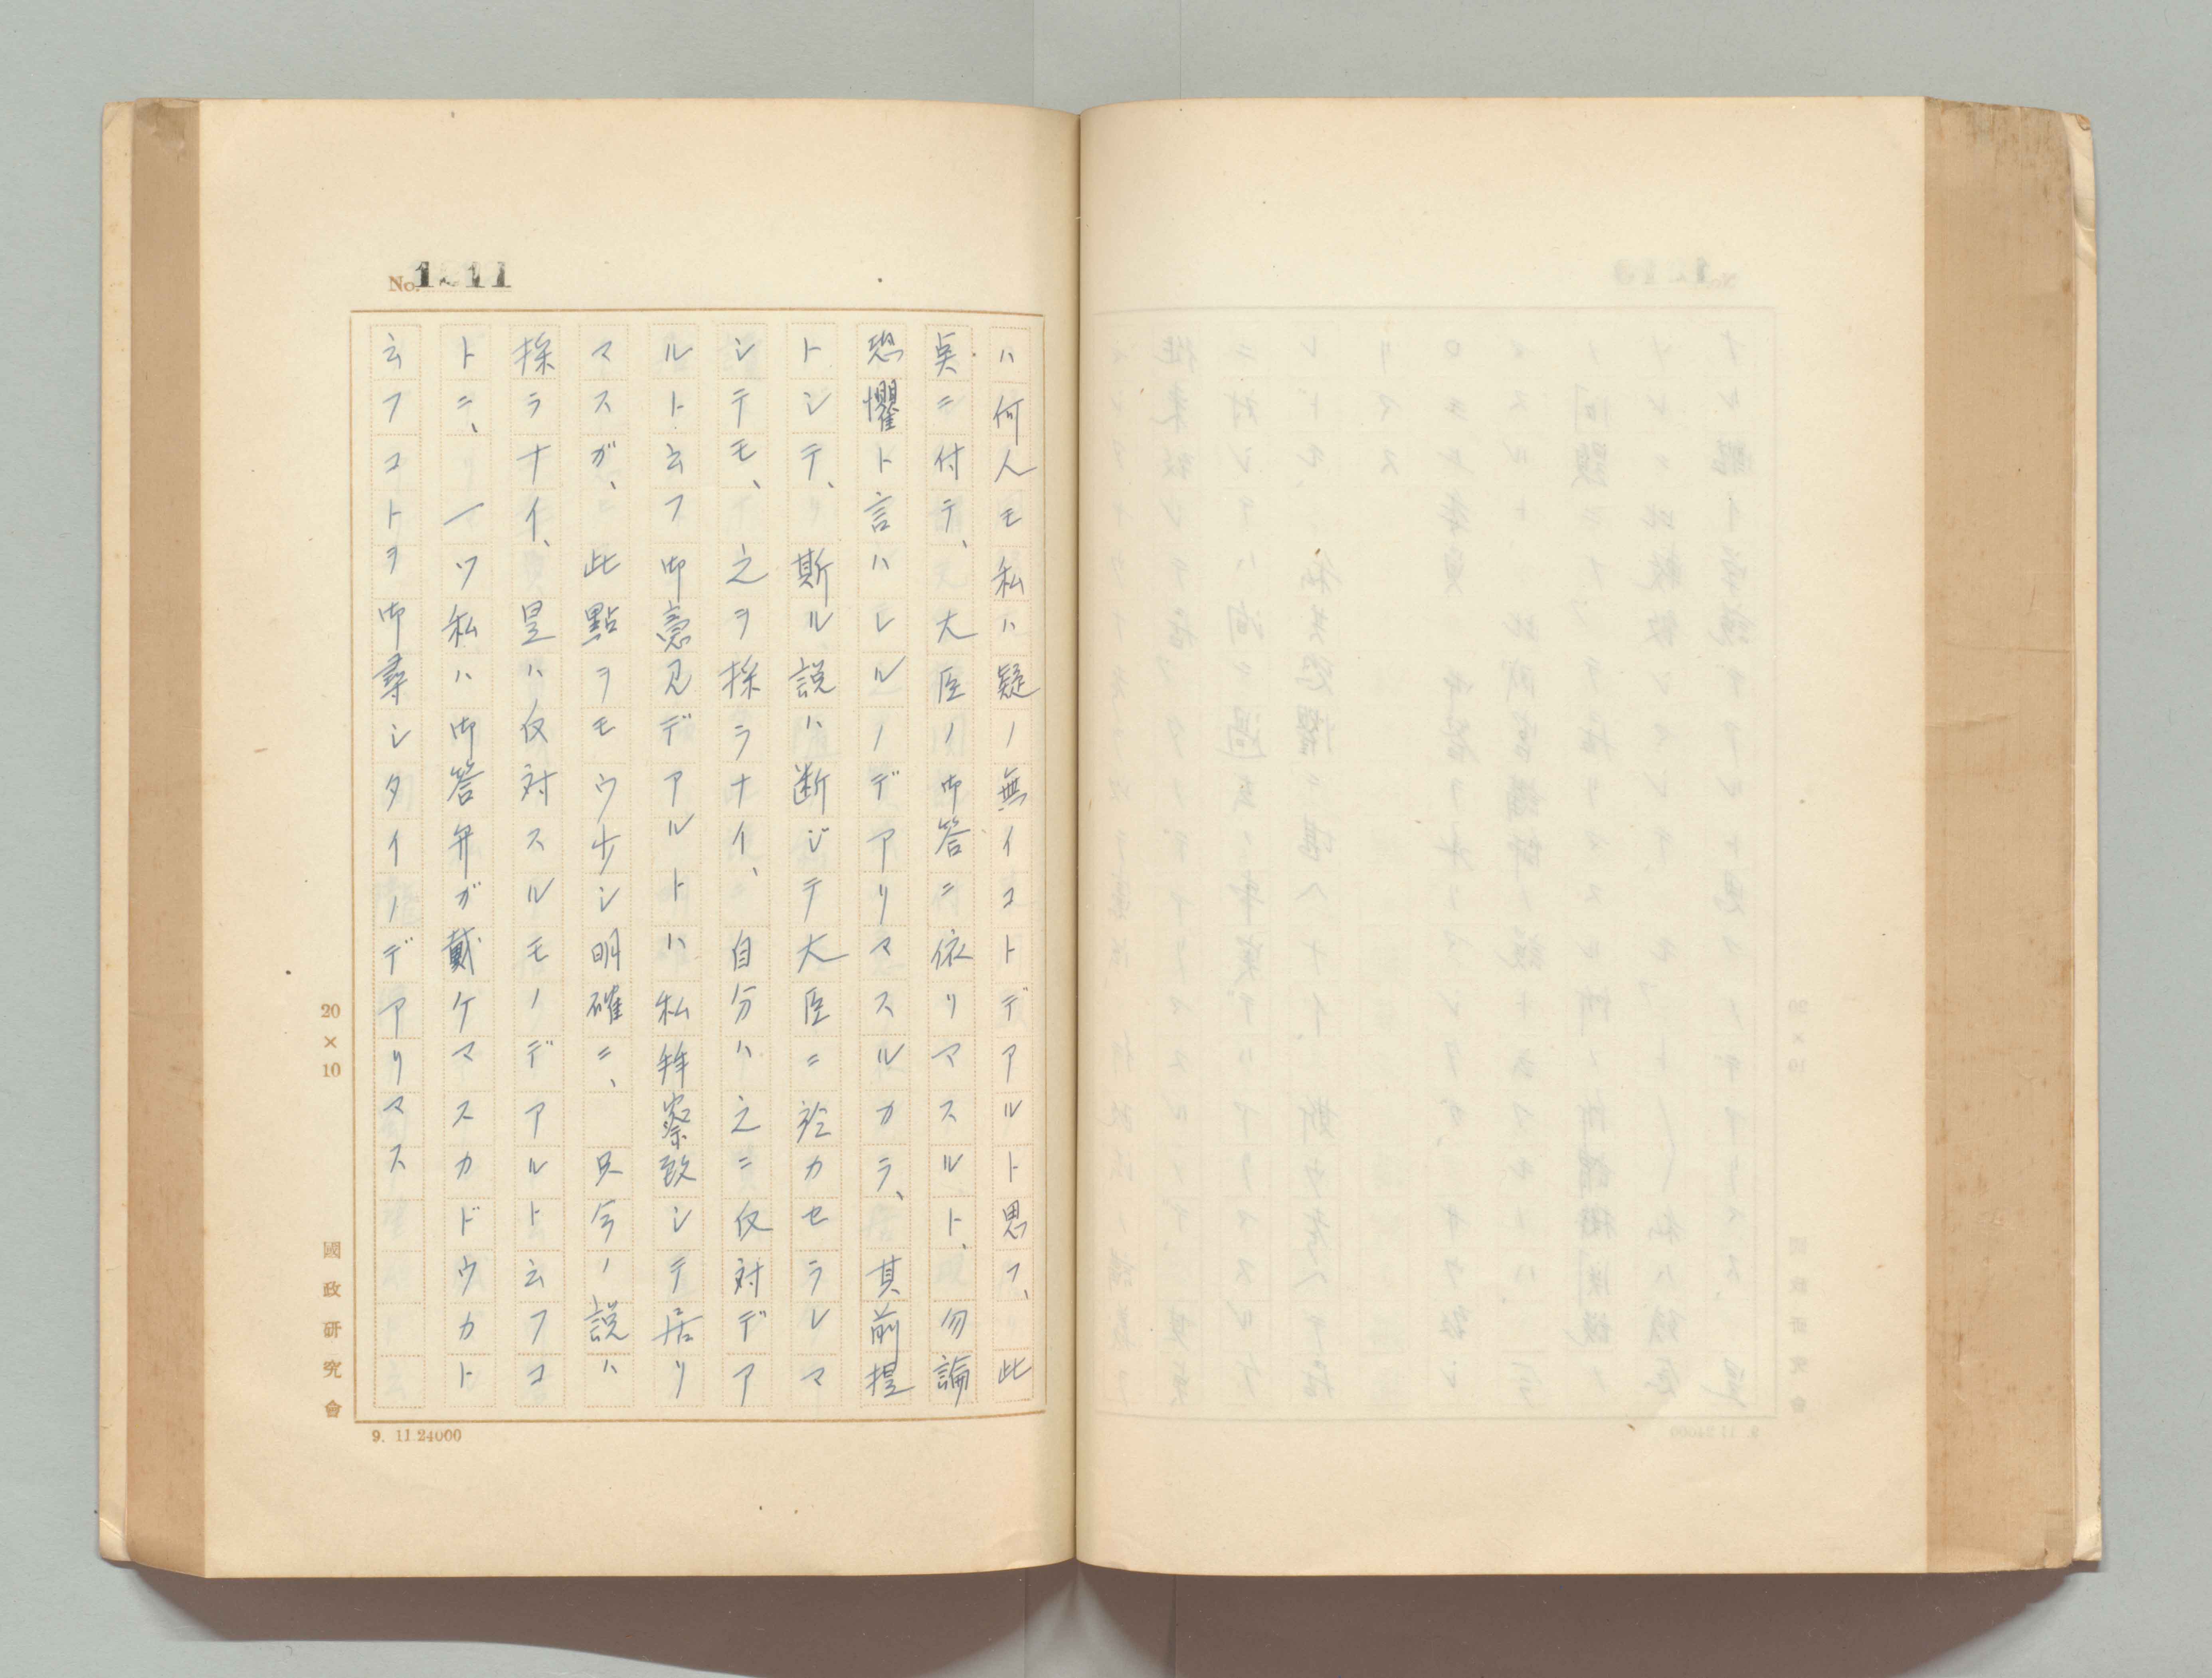 No. 1211
ハ何人モ私ハ疑ノ無イコトデアルト思フ、此
点ニ付テ、大臣ノ御答ニ依リマスルト、勿論
恐懼ト言ハレルノデアリマスルカラ、其前提
トシテ、斯ル説ハ断ジテ大臣ニ於カセラレマ
シテモ、之ヲ採ラナイ、自分ハ之ニ反対デア
ルト云フ御意見デアルトハ私拝察致シテ居リ
マスガ、此點ヲモウ少シ明確ニ、只今ノ説ハ
採ラナイ、是ハ反対スルモノデアルト云フコ
トニ、一ツ私ハ御答弁ガ戴ケマスカドウカト
云フコトヲ御尋シタイノデアリマス
20×10
國政研究會
9. 11.24000